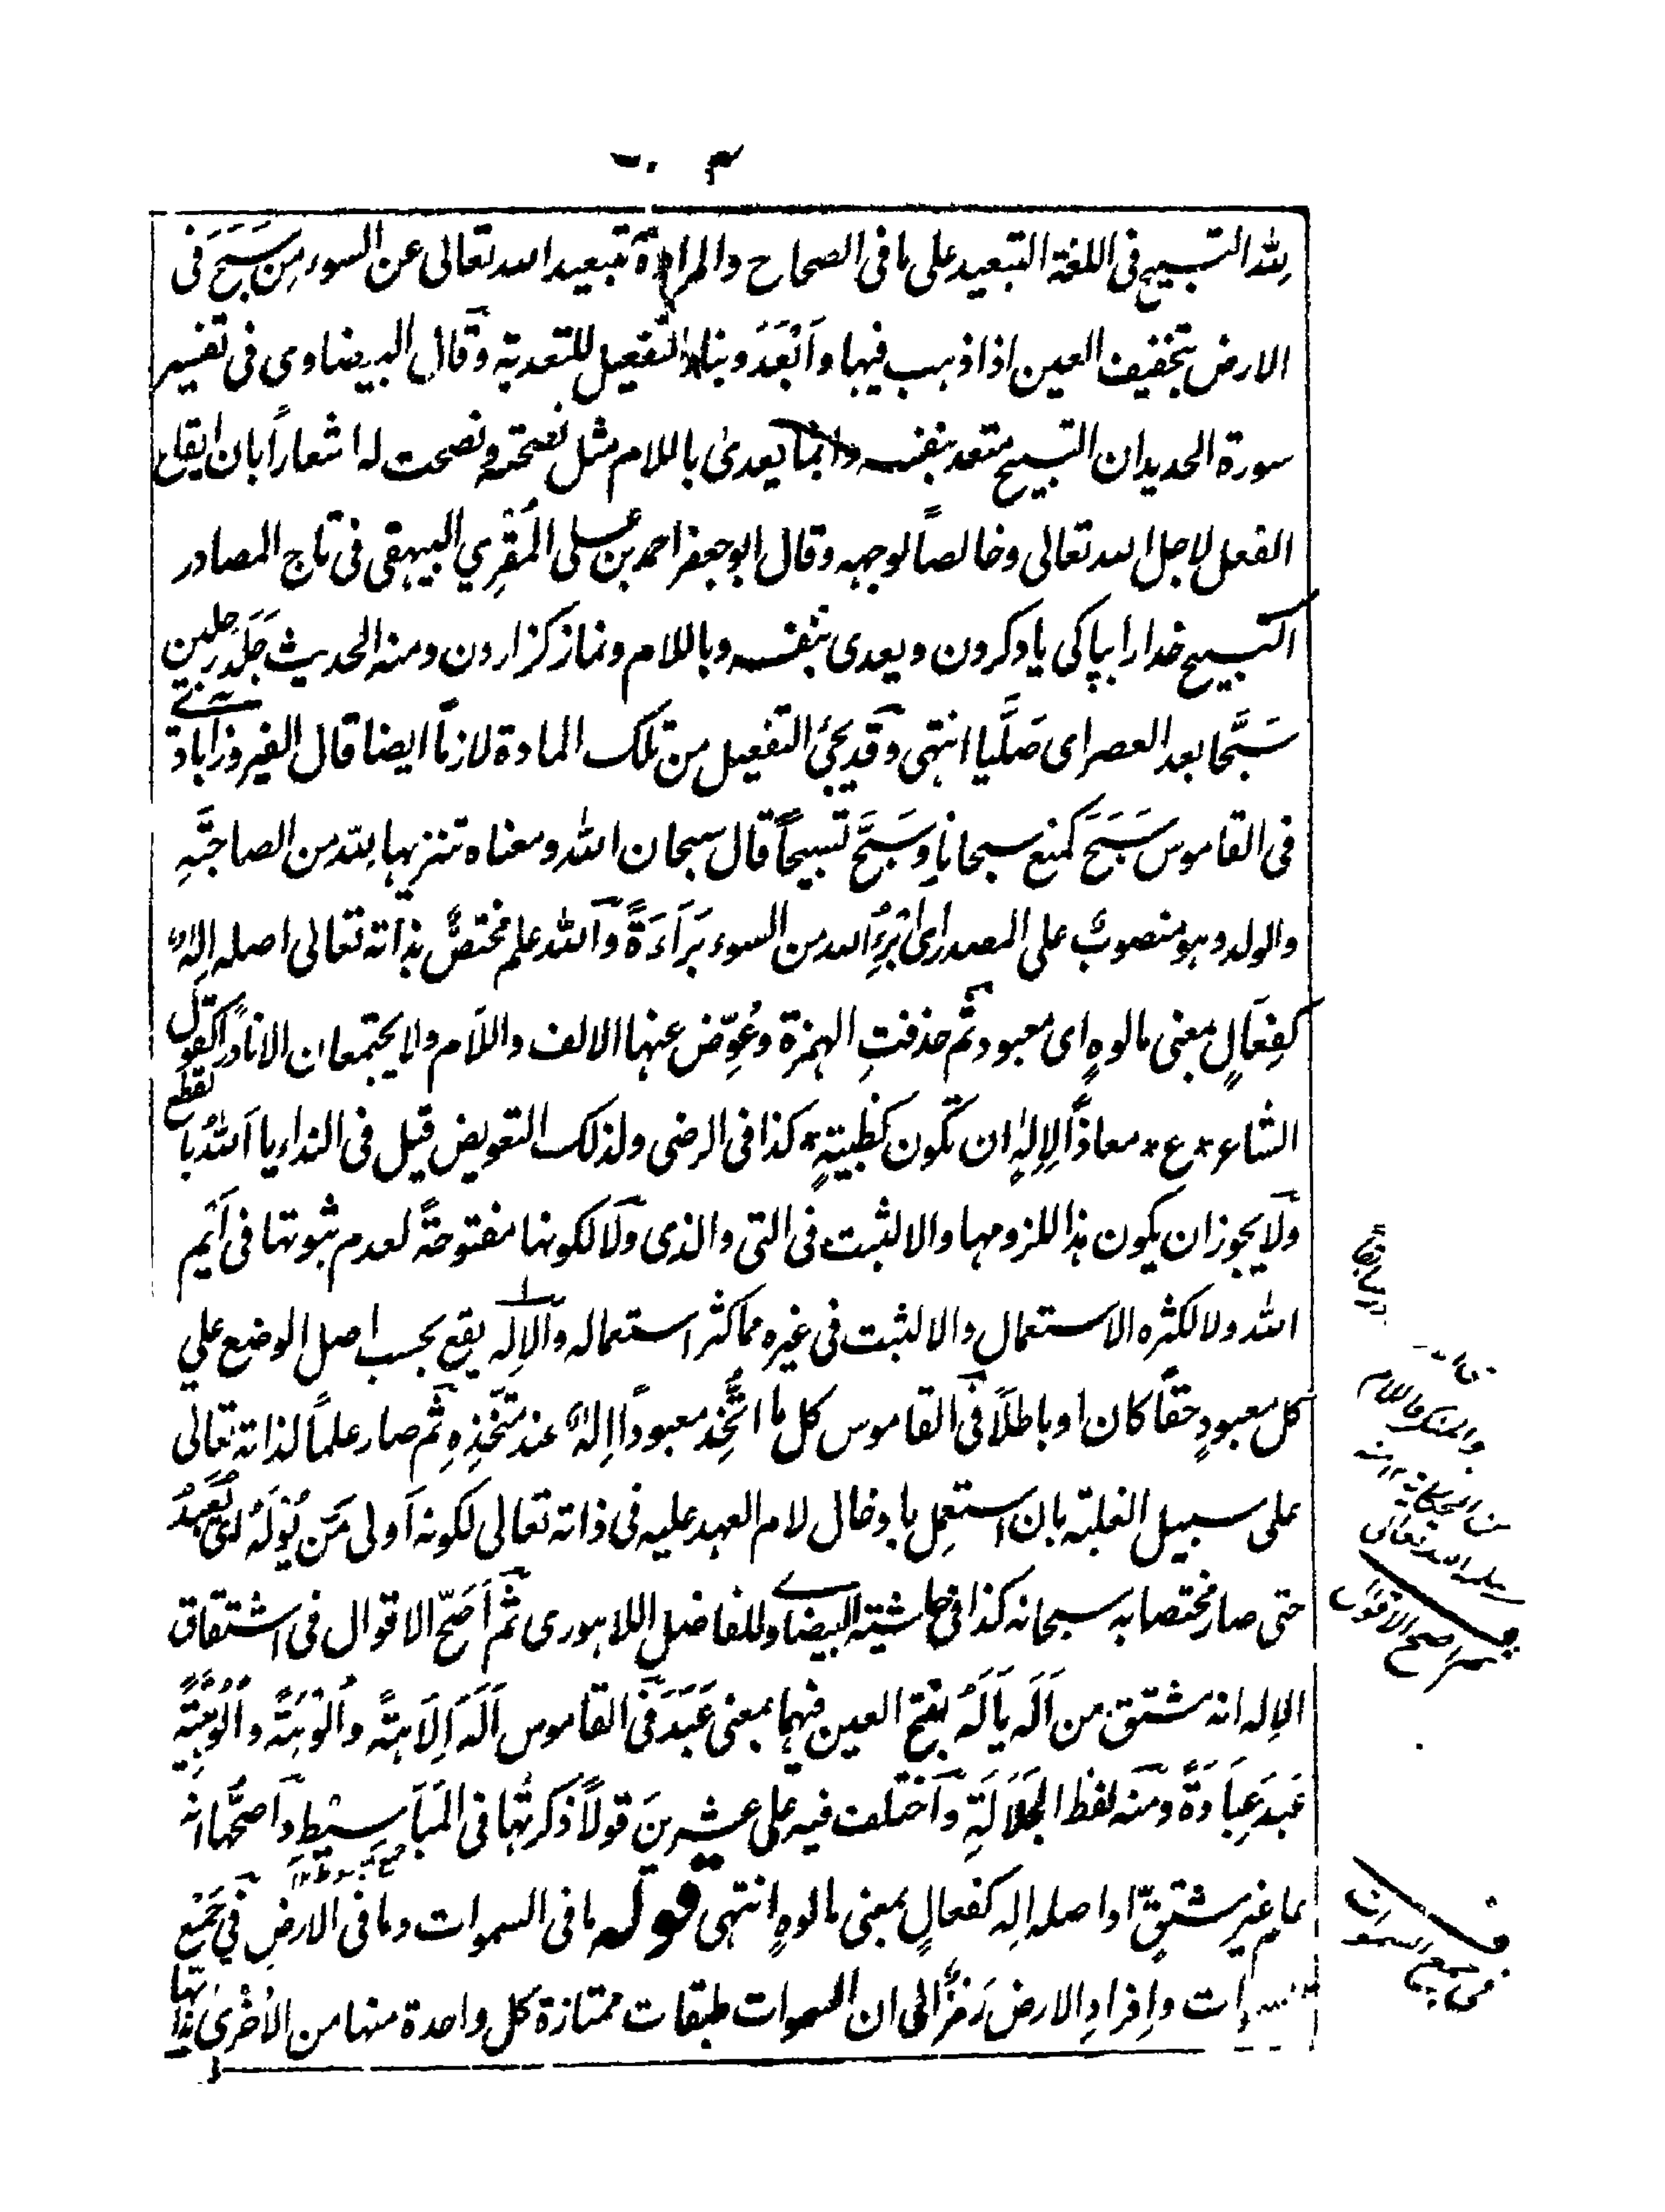 لله التسبيح فى اللغة التبعيد على ما فى الصحاح والمراد تبعيد الله تعالى عن السوء من سَبَحَ فى
الارض بتخفيف العين اذا ذهب فيها وَاَبْعَدَ وبناء التفعيل للتعدية وقال البيضاوى فى تفسير
سورة الحديد ان التسبيح متعد بنفسه وانما يعدى باللام مثل نصحته ونصحت له اشعاراً بان ايقاع
الفعل لاجل الله تعالى وخالصاً لوجهه وقال ابو جعفر احمد بن على المُقْرِي البيهقى فى تاج المصادر
التسبيح خدا را بپاكى ياد كردن ويعدى بنفسه وباللام ونماز كزاردن ومنه الحديث جَلَدَ رجلين
سَبَّحا بعد العصر اى صَلَّيا انتهى وقد يجئ التفعيل من تلك المادة لازماً ايضا قال الفيروزآبادى
فى القاموس سَبَحَ كمنع سبحانا وسَبَّحَ تسبيحاً قال سبحان الله ومعناه تنزيها لله من الصاحبَةِ
والولد وهو منصوبٌ على المصدر اى اُبَرِّئُ الله من السوء بَرَاءَةً والله علم مختصٌّ بذاته تعالى اصله اِلٰهٌ
كفِعَالٍ بمعنى مالوهٍ اى معبود ثم حذفتِ الهمزة وعُوِّض عنها الالف واللام ولا يجتمعان الا نادراً كقول
الشاعر * ع * معاذاً لِالِٰهِ ان تكون كظبيةٍ * كذا فى الرضى ولذلك التعويض قيل فى النداء يا اَللهُ بالقطع
ولا يجوز ان يكون هذا للزومها والا لثبت فى التى والذى ولا لكونها مفتوحةً لعدم ثبوتها فى اَيْم
الله ولا لكثرة الاستعمال والا لثبت فى غيره مما كثر استعماله والاله يقع بحسب اصل الوضع على
كل معبودٍ حقاً كان او باطلاً فى القاموس كل ما اتُّخِذ معبوداً اِلٰهٌ عند متخذِهِ ثم صار علماً لذاته تعالى
على سبيل الغلبة بان استعمل بادخال لام العهد عليه فى ذاته تعالى لكونه اَولى مَن يُؤْلَهُ اى يُعْبَدُ
حتى صار مختصا به سبحانه كذا فى حاشية البيضاوى للفاضل اللاهورى ثم اَصَحّ الاقوال فى اشتقاق
الاِله انه مشتق من اَلَهَ يَاْلَهُ بفتح العين فيهما بمعنى عَبَدَ فى القاموس اَلَهَ اِلَاهَةً واُلُوهَةً واُلُوهِيَّةً
عَبَدَ عِبَادَةً ومنه لفظ الجَلَالَةِ واختلف فيه على عشرينَ قولاً ذكرتُها فى المَبَاسِيْطِ واَصحُّها انه
علم غير مشتقٍّ او اصله اله كفعالٍ بمعنى مالوهٍ انتهى قوله ما فى السموات وما فى الارضِ فى جَمْعِ
السموات واِفرادِ الارض رَمْزٌ الى ان السموات طبقات ممتازة كل واحدة منها من الاُخْرٰى بذاتها
اصح الاقوال
فى جمع السموات